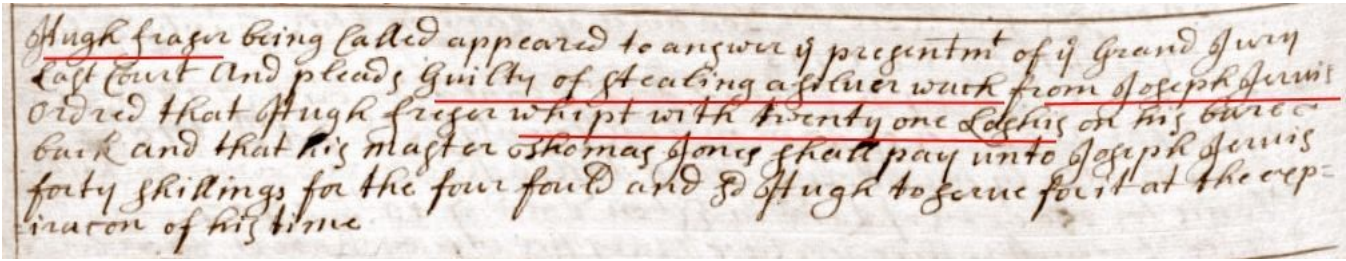 Hugh Fraser being Called appeared to answer ye presentmt of ye Grand Jury
Last Court And pleads Guilty of stealing a silver wach from Joseph Jervis
Ordred that Hugh Freser whipt with twenty one Lashis on his bare
back and that his master Thomas Jones shall pay unto Joseph Jervis
forty shillings for the four fould and sd Hugh to serve for it at the exp=
iracon of his time